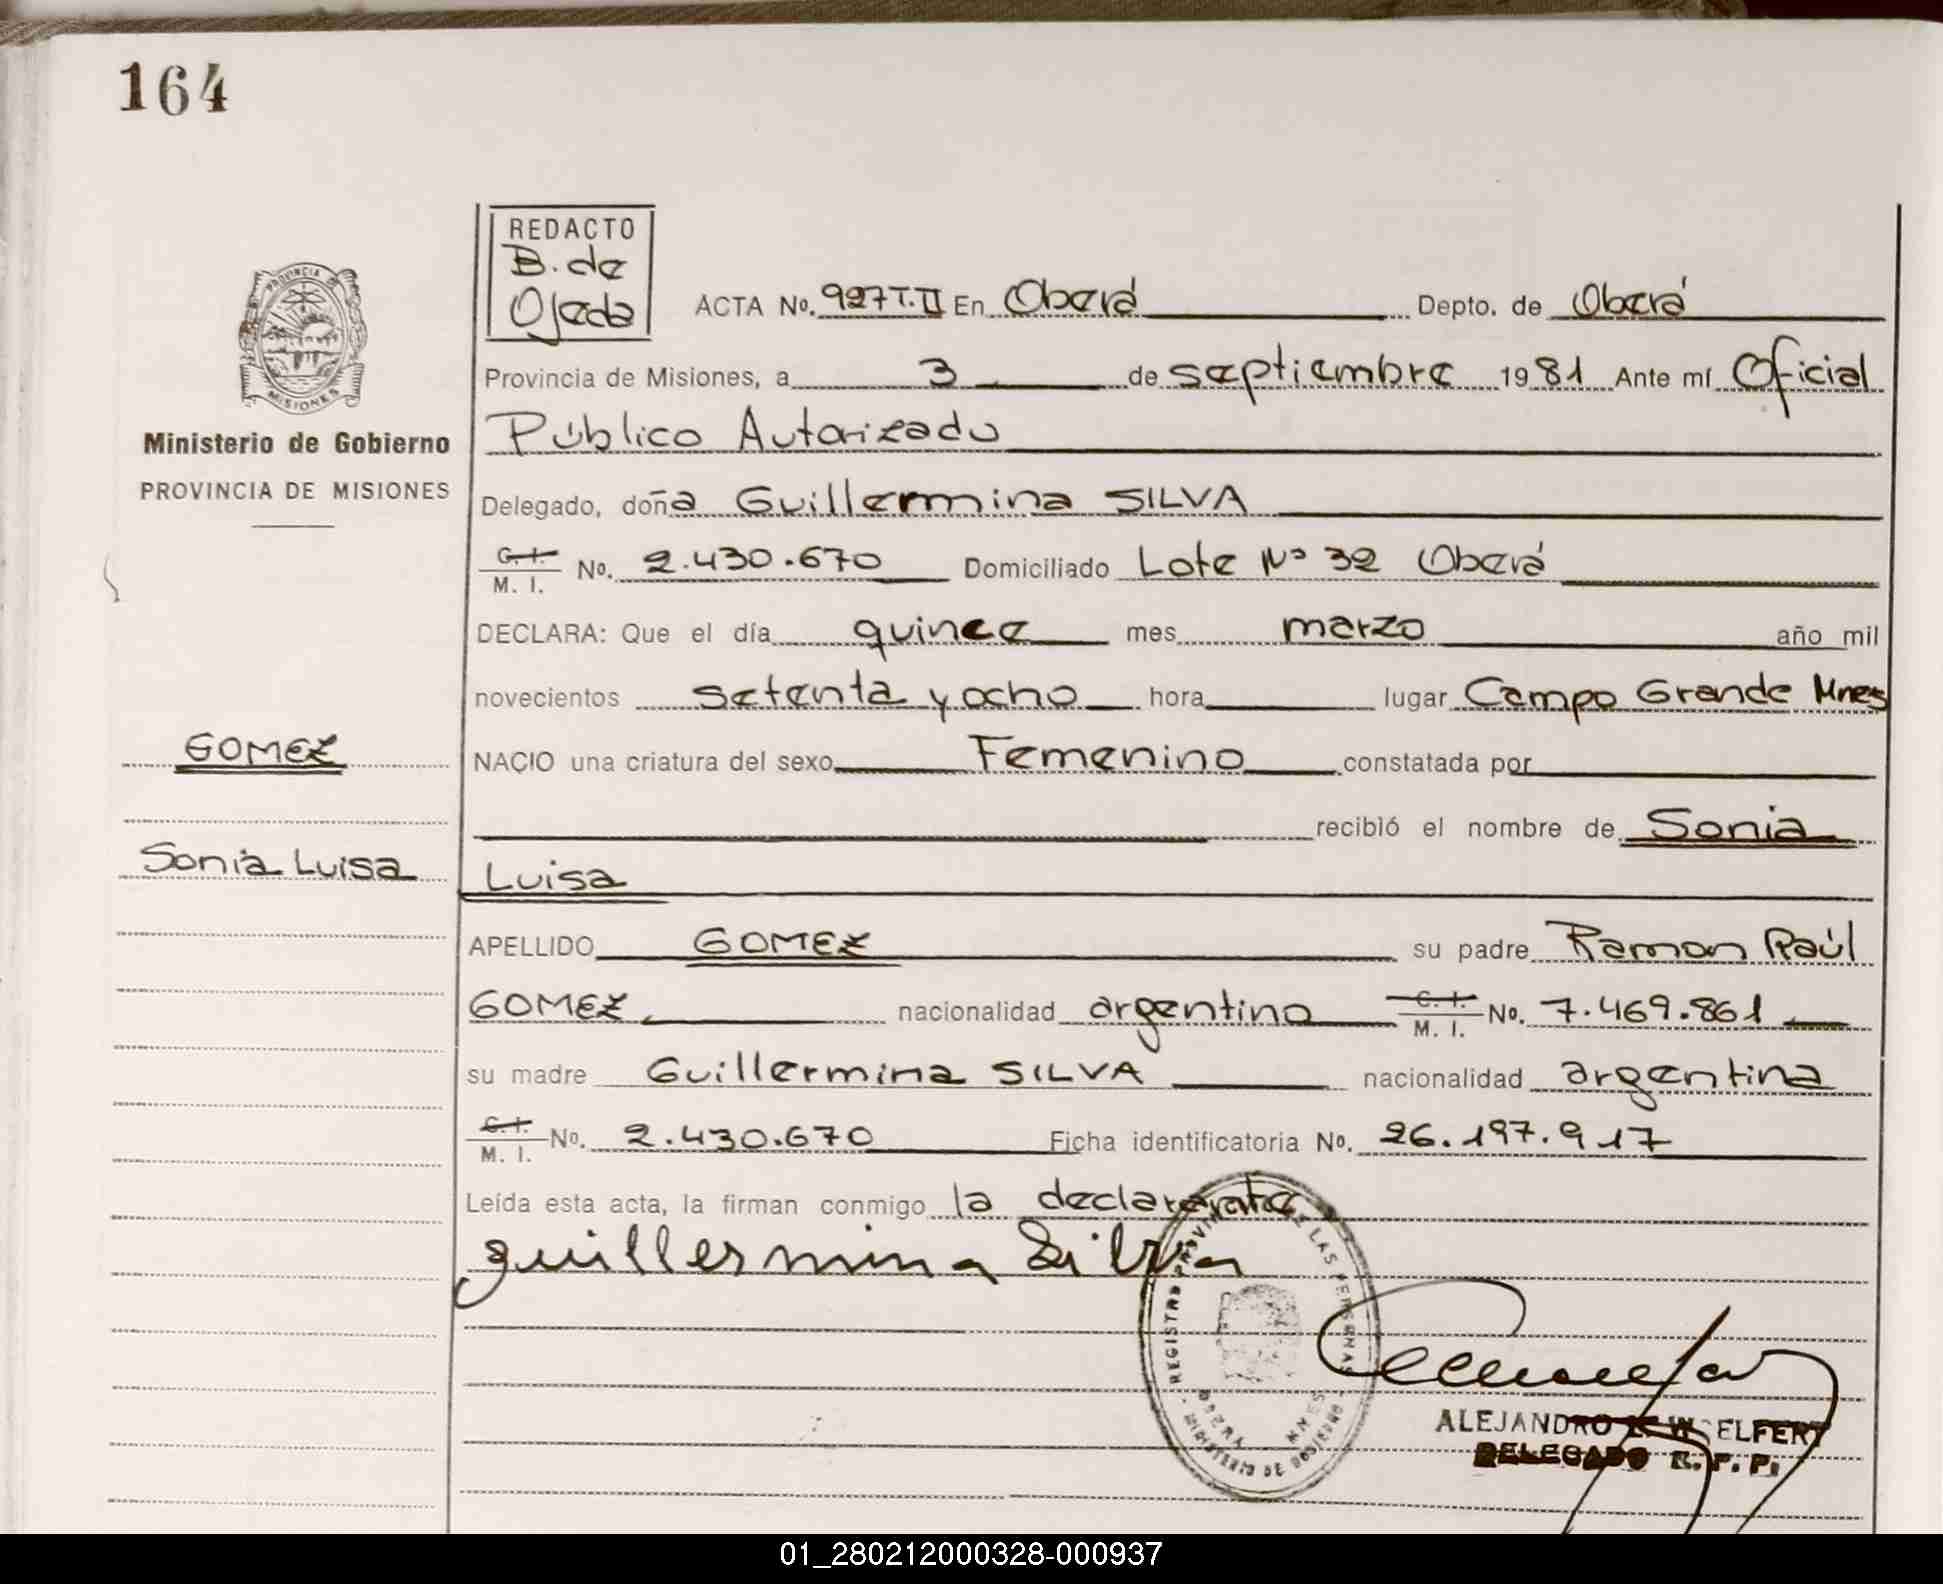 164
REDACTO
B. de
Ojeda
ACTA No. 927 T.II En Oberá Depto. de Oberá
Provincia de Misiones, a 3 de septiembre 1981 Ante mí Oficial
Público Autorizado
PROVINCIA
MISIONES
Ministerio de Gobierno
PROVINCIA DE MISIONES
Delegado, doña Guillermina SILVA
C. I.
M. I. No. 2.430.670 Domiciliado Lote Nº 32 Oberá
DECLARA: Que el día quince mes marzo año mil
novecientos setenta y ocho hora lugar Campo Grande Mnes
GOMEZ
NACIO una criatura del sexo Femenino constatada por
recibió el nombre de Sonia
Sonia Luisa
Luisa
APELLIDO GOMEZ su padre Ramon Raúl
GOMEZ nacionalidad argentino C. I. M. I. No. 7.469.861
su madre Guillermina SILVA nacionalidad argentina
C. I.
M. I. No. 2.430.670 Ficha identificatoria No. 26.197.917
Leída esta acta, la firman conmigo la declarante
guillermina Silva
REGISTRO PROVINCIAL DE LAS PERSONAS
MINISTERIO DE GOBIERNO
OBERA MNES
ALEJANDRO WOELFERT
DELEGADO R. P. P.
01_280212000328-000937